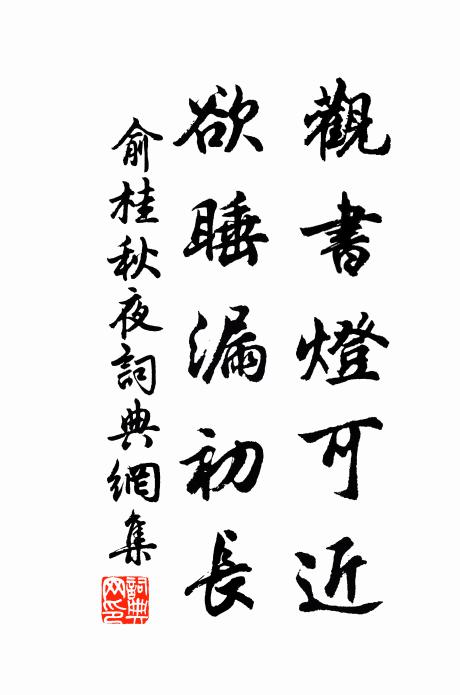 觀書燈可近
欲睡漏初長
俞桂秋夜詞典網集
詞典網印